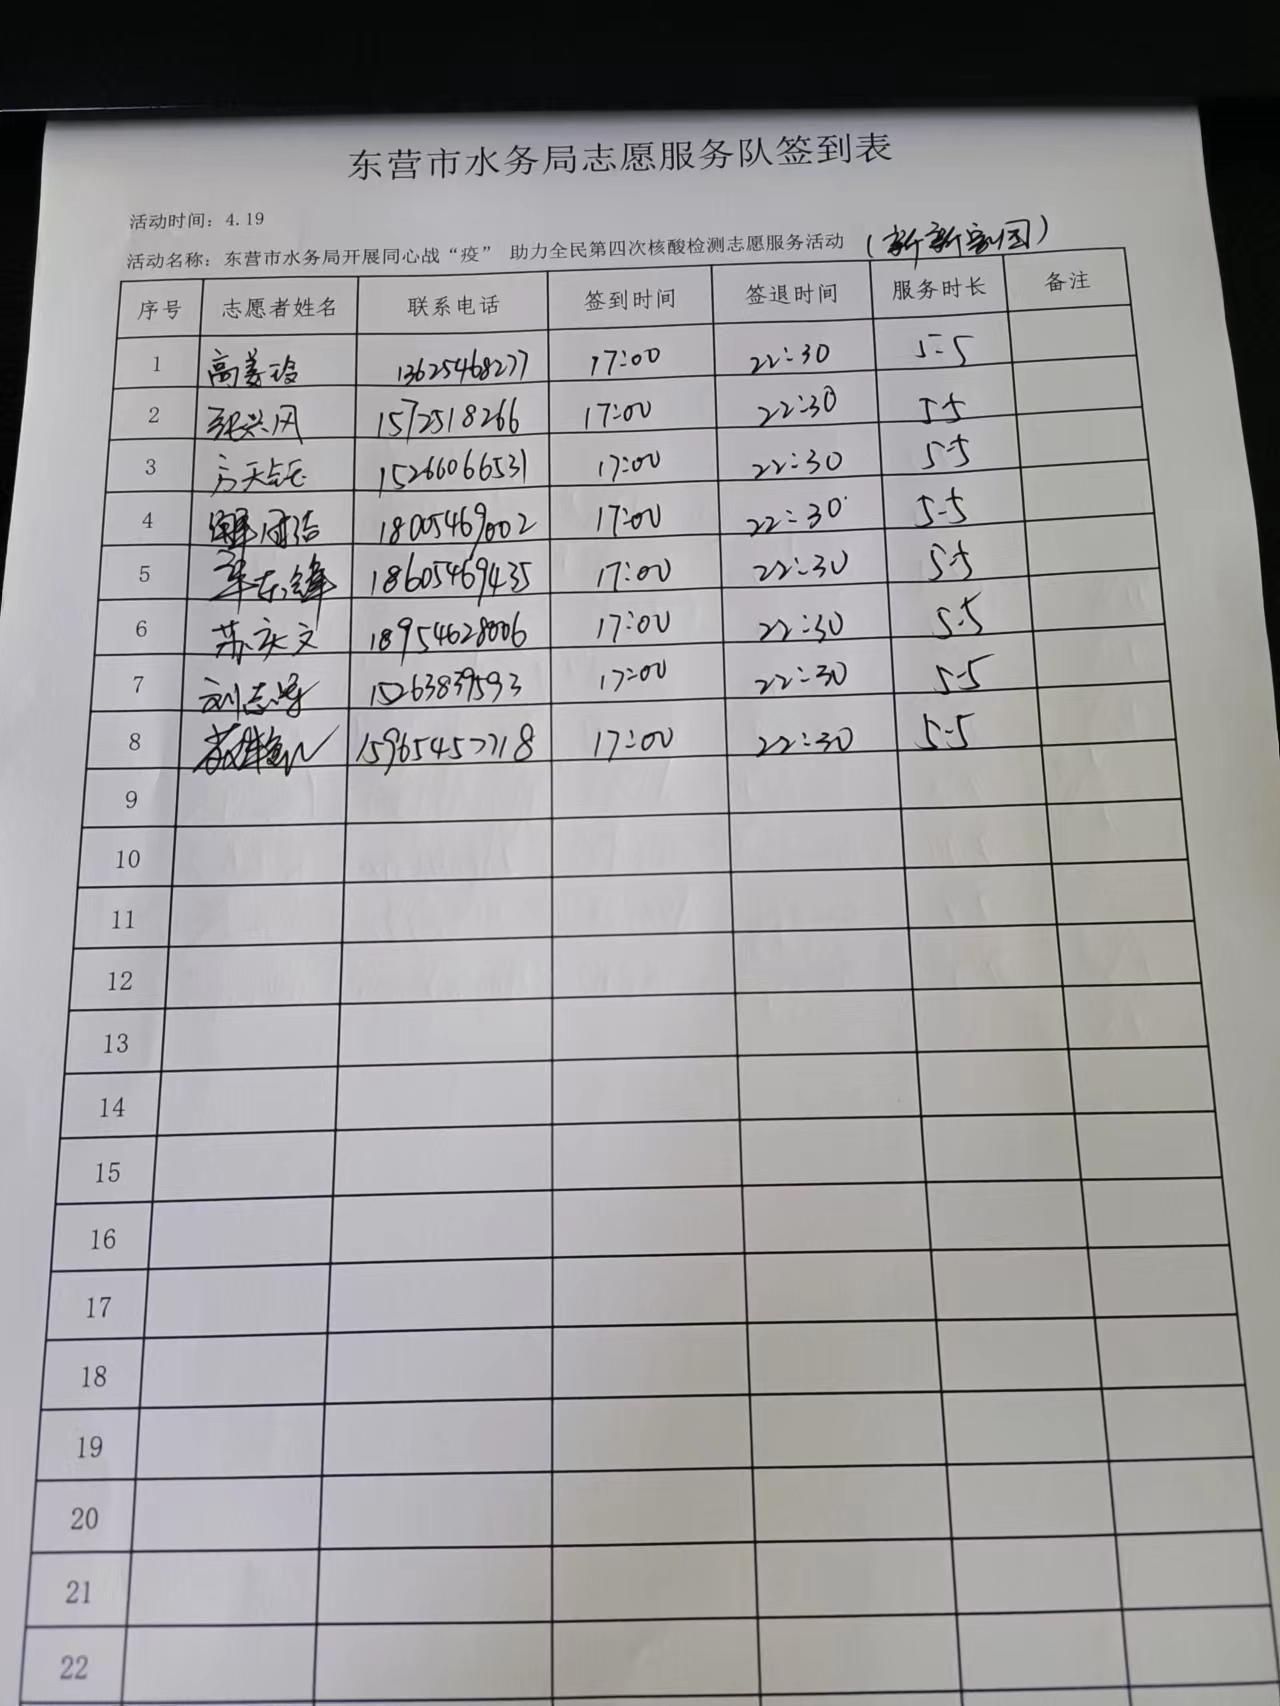 东营市水务局志愿服务队签到表
活动时间：4.19
活动名称：东营市水务局开展同心战“疫” 助力全民第四次核酸检测志愿服务活动（新新家园）
序号 志愿者姓名 联系电话 签到时间 签退时间 服务时长 备注
1 高姜玲 13625468277 17:00 22:30 5.5
2 张兴凤 1572518266 17:00 22:30 5.5
3 方天钰 15266066531 17:00 22:30 5.5
4 18005469002 17:00 22:30 5.5
5 18605469435 17:00 22:30 5.5
6 苏庆文 18954628006 17:00 22:30 5.5
7 15263839593 17:00 22:30 5.5
8 15965457718 17:00 22:30 5.5
9
10
11
12
13
14
15
16
17
18
19
20
21
22